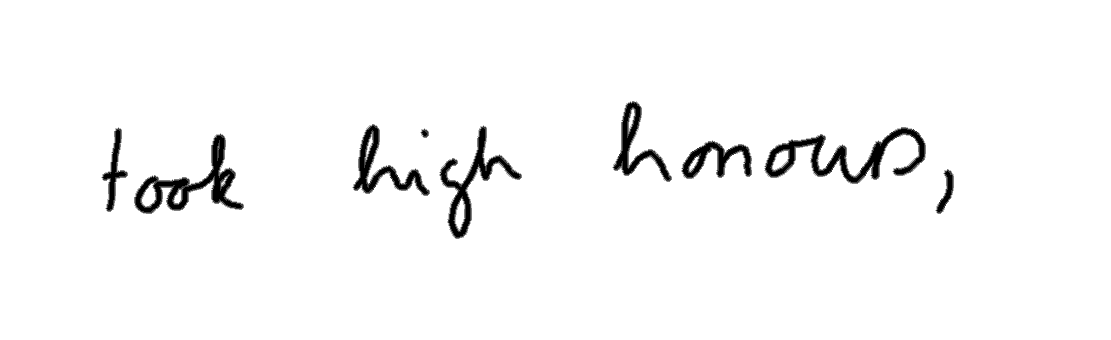 took high honours,